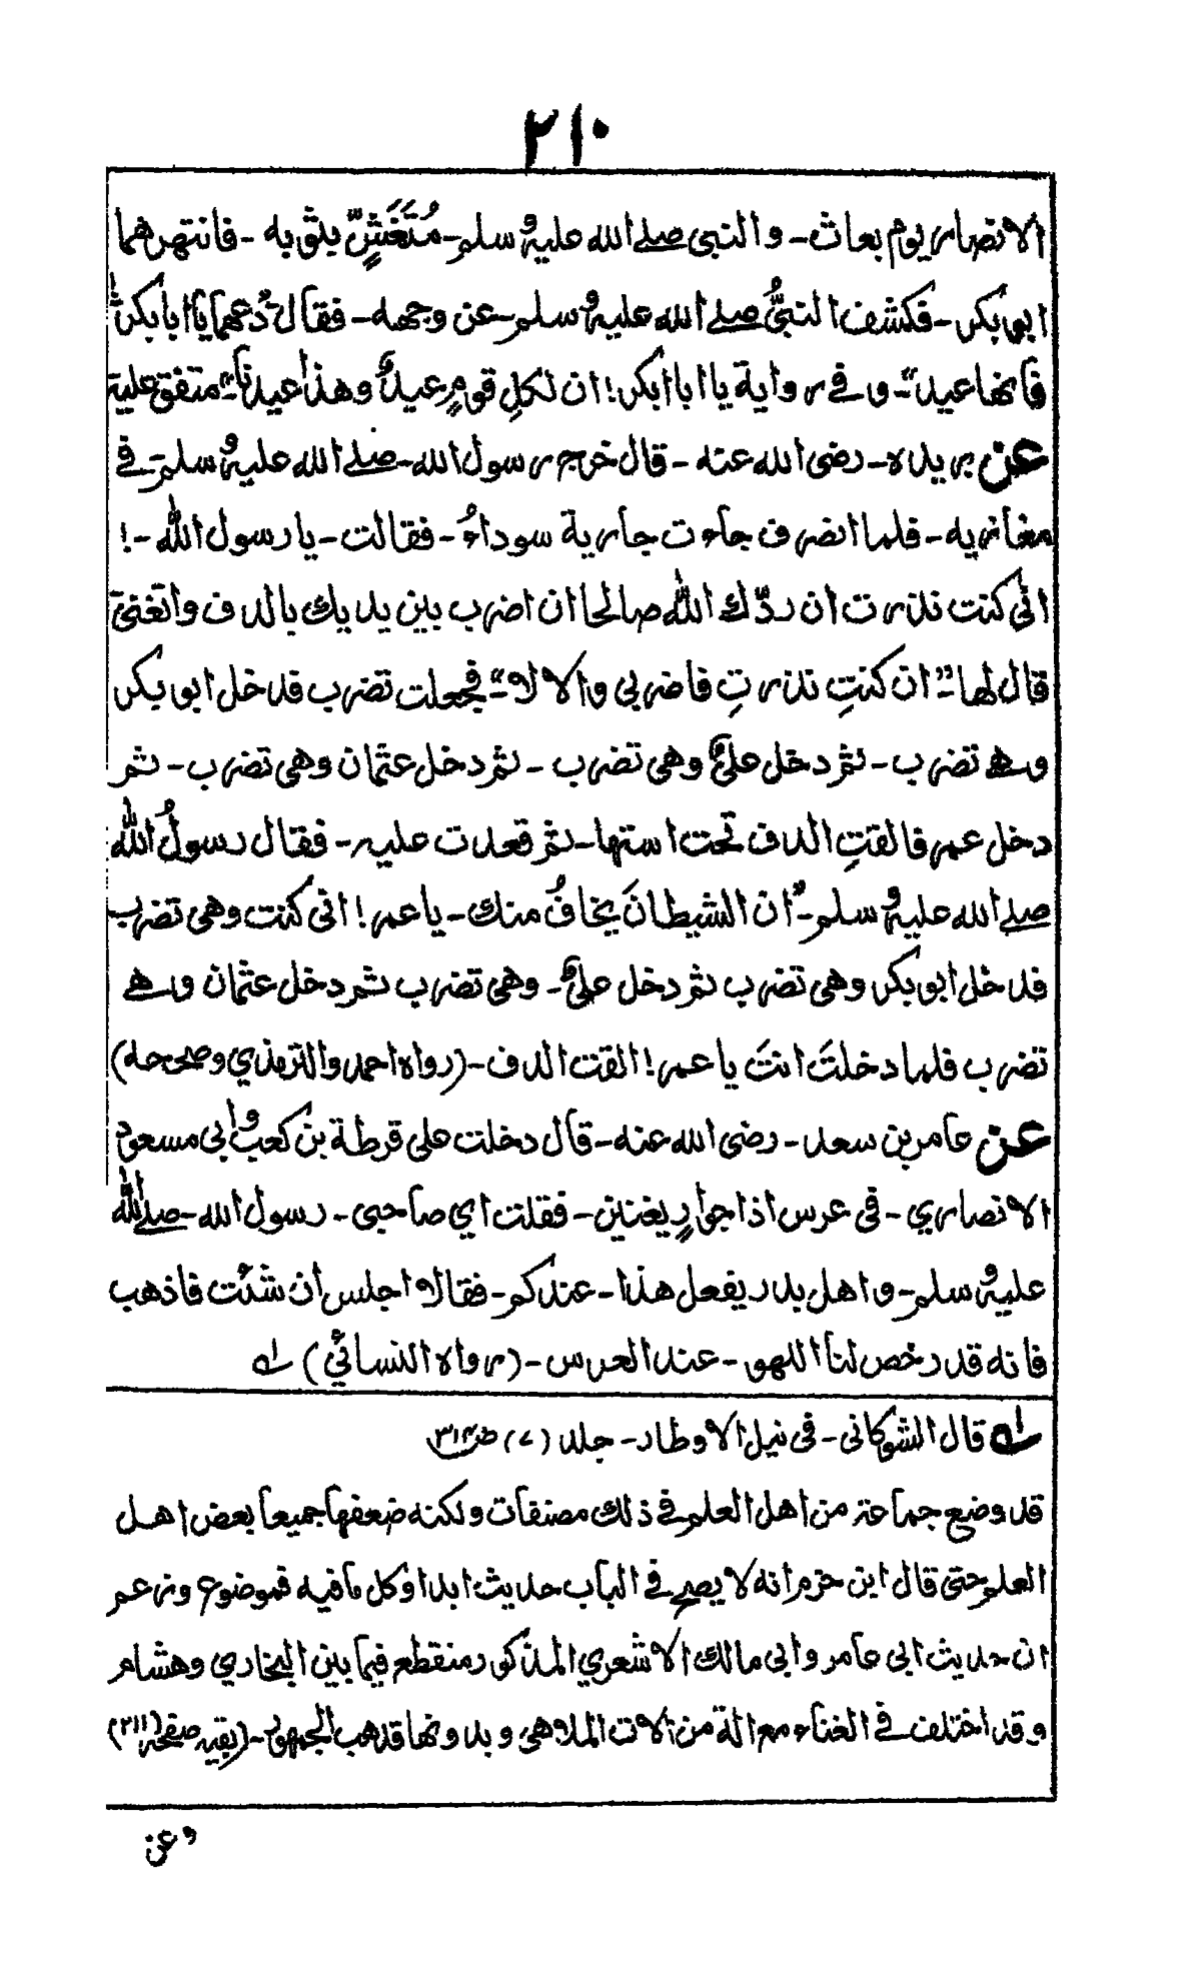 ٢١٠
الانصار يوم بعاث - والنبى صلے الله عليه وسلم - مُتَغَشٍّ بثوبه - فانتهرهما
ابو بكر - فكشف النبىُّ صلے الله عليه وسلم - عن وجهه - فقال "دعهما يا ابا بكر
فانها عيد" - وفے رواية يا ابا بكر! ان لكلِ قومٍ عيدٌ وهذا عيدنا" - متفق عليه
عن بريده - رضى الله عنه - قال خرج رسول الله - صلے الله عليه وسلم - فے
مغازيه - فلما انصرف جاءت جارية سوداءُ - فقالت - يا رسول الله - !
انى كنت نذرت ان ردّك الله صالحا ان اضرب بين يديك بالدف واتغنىٰ
قال لها "- ان كنتِ نذرتِ فاضربى والا لا" - فجعلت تضرب فدخل ابو بكر
وهے تضرب - ثم دخل علىٌ وهى تضرب - ثم دخل عثمان وهى تضرب - ثم
دخل عمر فالقتِ الدف تحت استها - ثم قعدت عليه - فقال رسولُ الله
صلے الله عليه وسلم - "ان الشيطانَ يخافُ منك - يا عمر! انى كنت وهى تضرب
فدخل ابو بكر وهى تضرب ثم دخل علىٌ - وهى تضرب ثم دخل عثمان وهے
تضرب فلما دخلتَ انتَ يا عمر! القت الدف - (رواه احمد والترمذي وصححه)
عن عامر بن سعد - رضى الله عنه - قال دخلت على قرظة بن كعب وابى مسعود
الانصاري - فى عرس اذا جوارٍ يغنين - فقلت اي صاحبى - رسول الله - صلے الله
عليه وسلم - واهل بدر يفعل هذا - عندكم - فقالا اجلس ان شئت فاذهب
فانه قد رخص لنا اللهو - عند العرس - (رواه النسائي) له
له قال الشوكانى - فى نيل الاوطار - جلد (٧) ص ٣١٤
قد وضع جماعة من اهل العلم فے ذلك مصنفات ولكنه ضعفها جميعا بعض اهل
العلم حتى قال ابن حزم انه لا يصح فے الباب حديث ابدا وكل ما فيه فموضوع وزعم
ان حديث ابى عامر وابى مالك الاشعري المذكور منقطع فيما بين البخاري وهشام
وقد اختلف فے الغناء مع الة من الات الملاهى وبدونها فذهب الجمهور - (بقيه صفحه ٢١١)
وعن